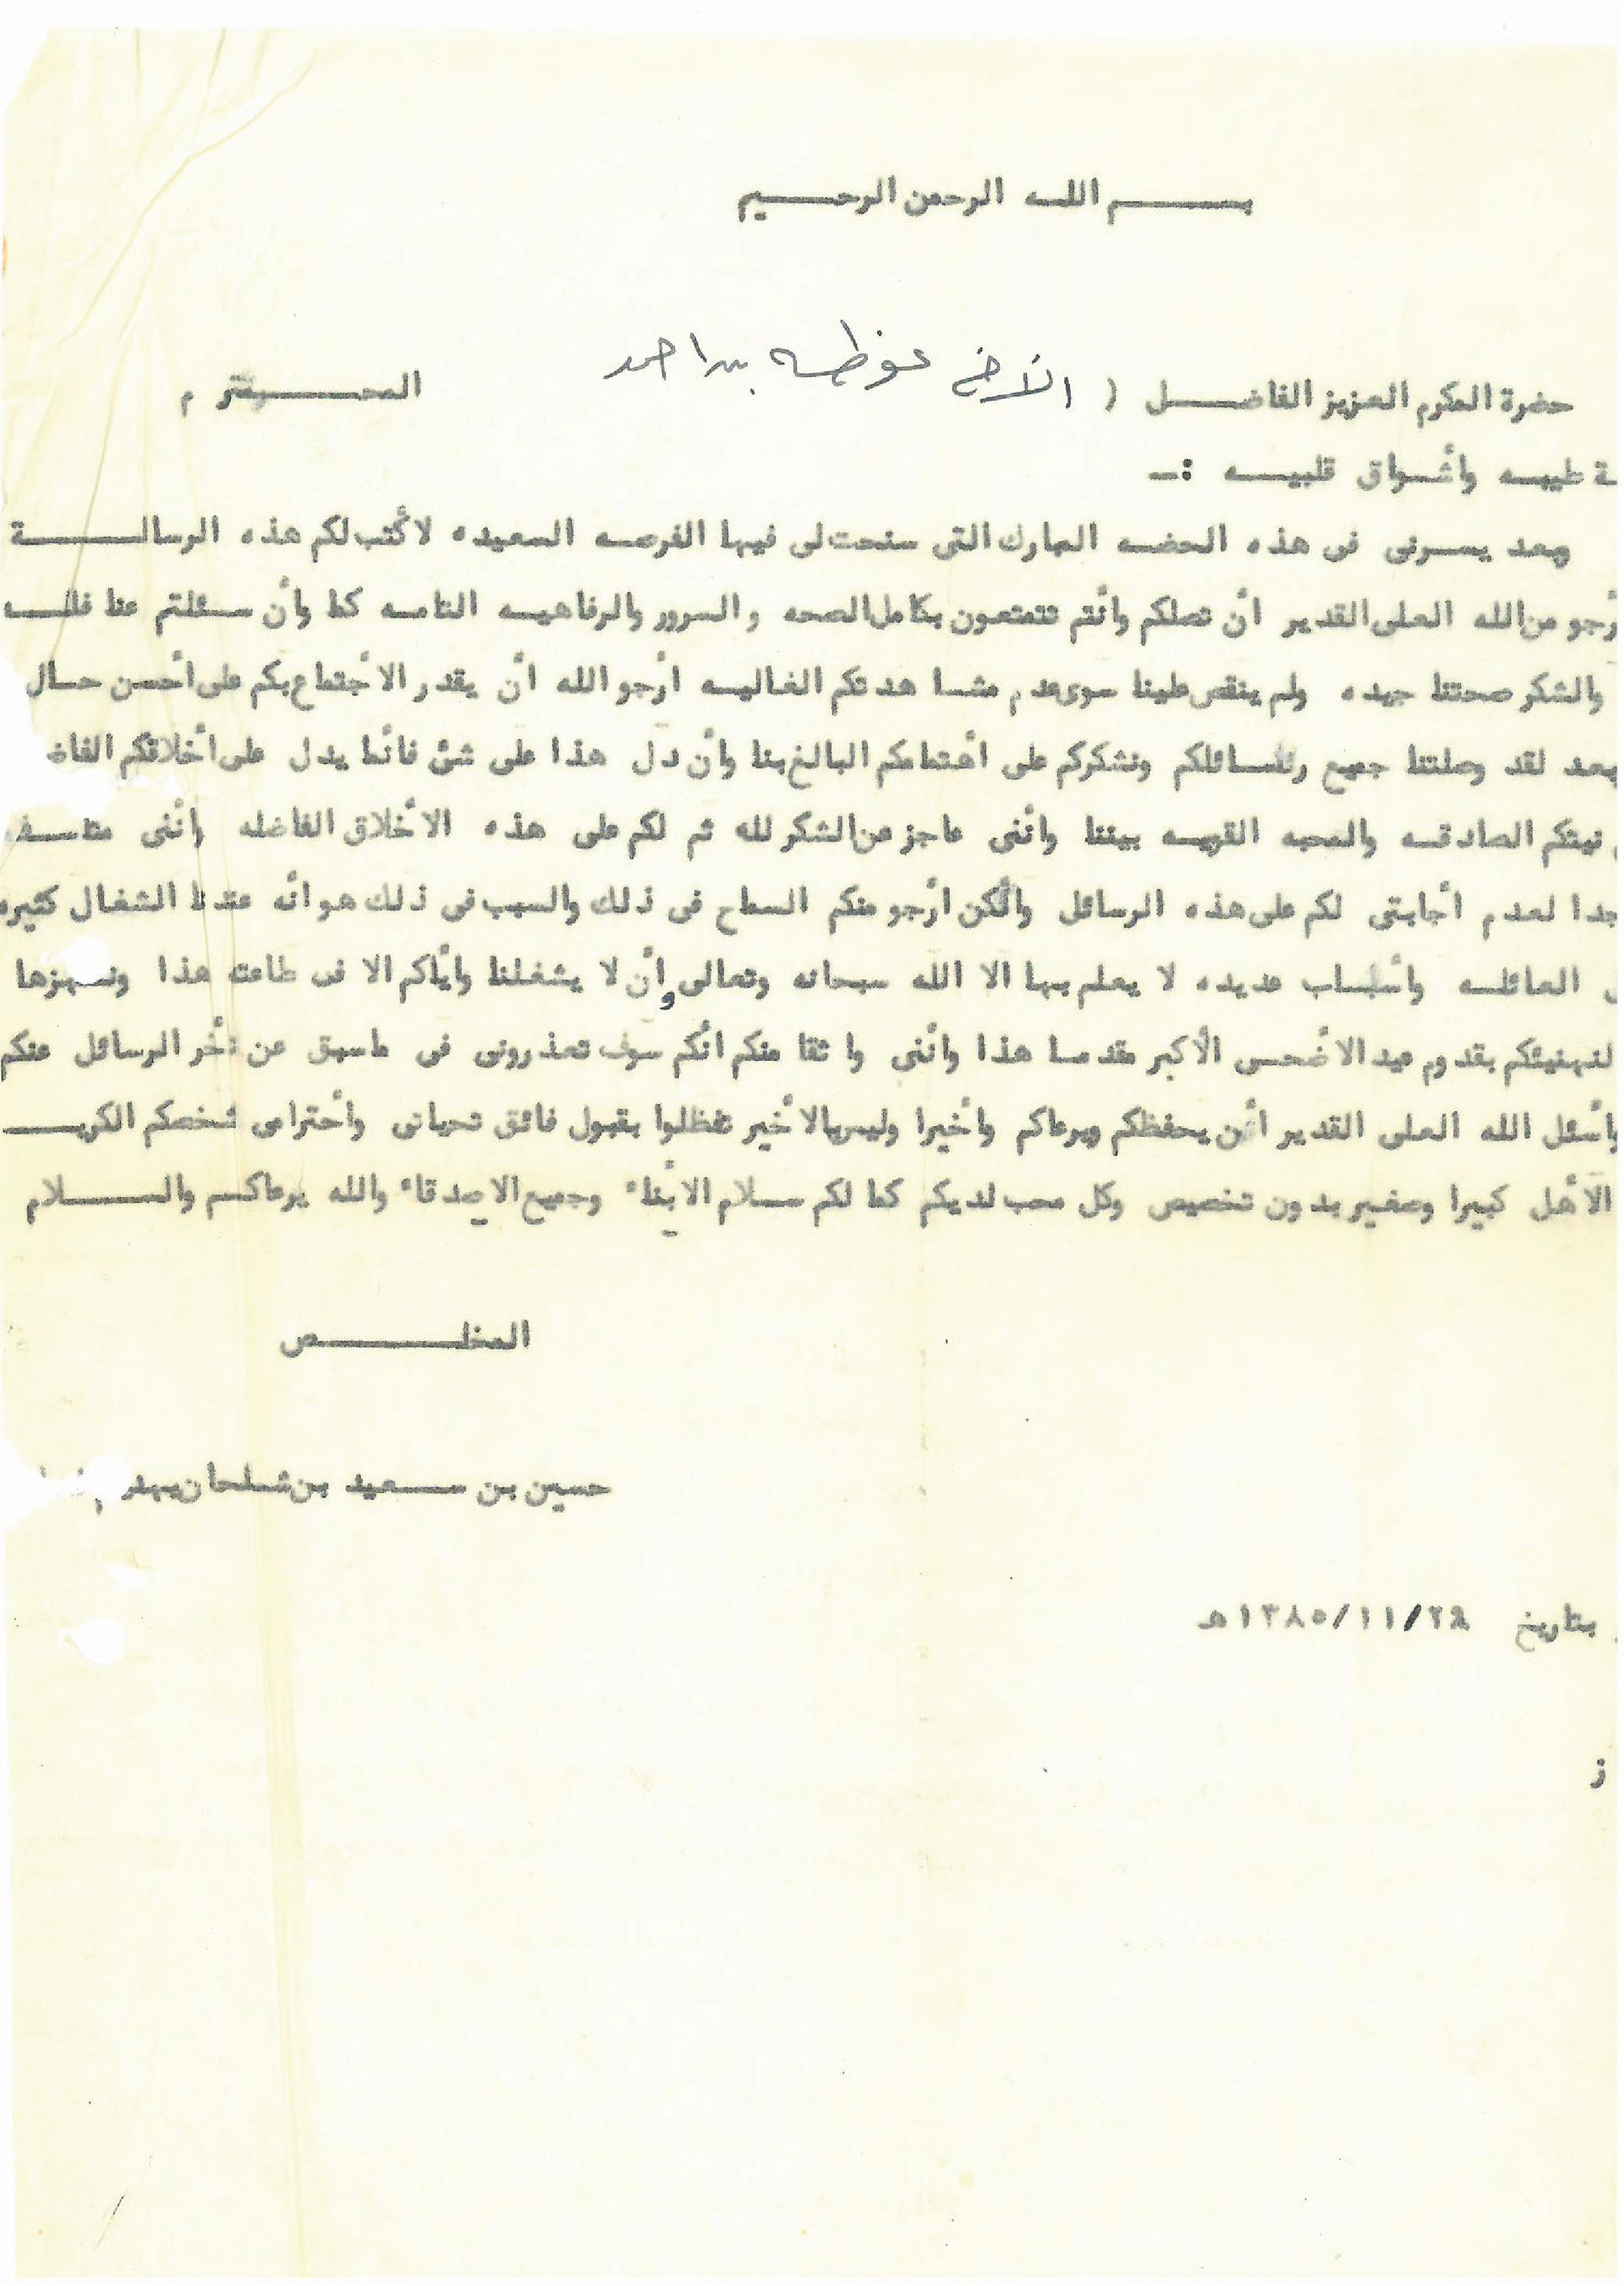 بسم الله الرحمن الرحيم
حضرة المكرم العزيز الفاضل ( الأخ عوظه بن احمد المحترم
ة طيبه وأشواق قلبيه :ـ
وبعد يسرنى فى هذه الحضه المبارك التى سنحت لى فيها الفرصه السعيده لاكتب لكم هذه الرسالة
أرجو من الله العلى القدير أن تصلكم وأنتم تتمتعون بكامل الصحه والسرور والرفاهيه التامه كما وأن سئلتم عنا فلله
والشكر صحتنا جيده ولم ينقص علينا سوى عدم مشاهدتكم الغاليه أرجو الله أن يقدر الأجتماع بكم على أحسن حال
بعد لقد وصلتنا جميع رسائلكم ونشكركم على أهتمامكم البالغ بنا وأن دل هذا على شئ فأنما يدل على أخلاقكم الفاض
نيتكم الصادقه والمحبه القويه بيننا وأننى عاجز عن الشكر لله ثم لكم على هذه الأخلاق الفاضله وأننى متاسف
جدا لعدم أجابتى لكم على هذه الرسائل ولكن أرجو منكم السماح فى ذلك والسبب فى ذلك هو أنه عندنا الشغال كثيره
العائله وأسباب عديده لا يعلم بها الا الله سبحانه وتعالى وأن لا يشغلنا وأياكم الا فى طاعته هذا ونسهزها
لنهنيئكم بقدوم عيد الاضحى الأكبر مقدما هذا وأننى واثقا منكم أنكم سوف تعذرونى فى ماسبق عن تأخر الرسائل عنكم
وأسئل الله العلى القدير أن يحفظكم ويرعاكم وأخيرا وليس بالأخير تفظلوا بقبول فائق تحياتى وأحترامى شخصكم الكريم
الأهل كبيرا وصغير بدون تخصيص وكل محب لديكم كما لكم سلام الابناء وجميع الاصدقاء والله يرعاكم والسلام
المخلص
حسين بن سعيد بن شلحان
بتاريخ ١٣٨٥/١١/٢٩ هـ
ز